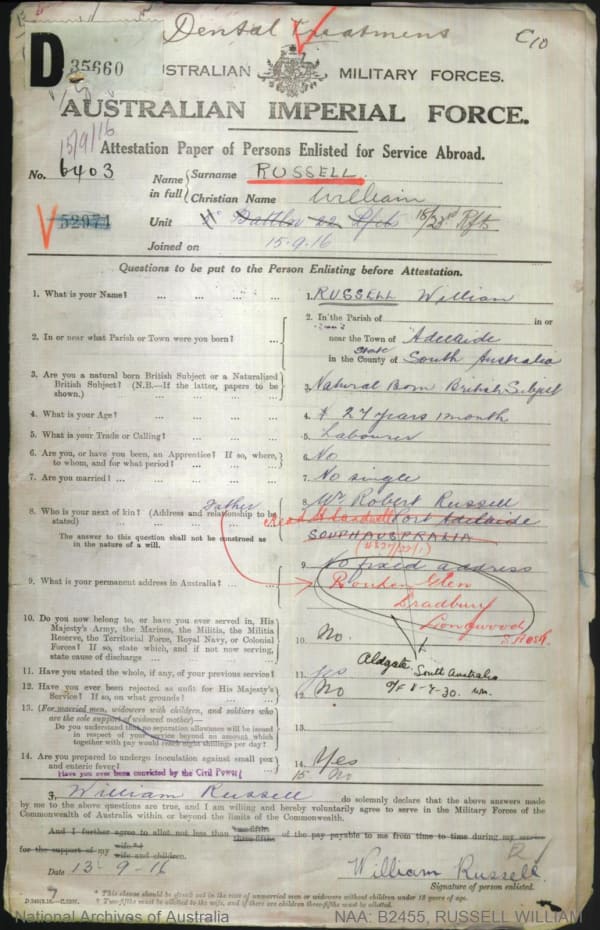 Dental Treatment
C10
D 35660
AUSTRALIAN MILITARY FORCES.
AUSTRALIAN IMPERIAL FORCE.
15/9/16
Attestation Paper of Persons Enlisted for Service Abroad.
No. 6403
Name in full { Surname RUSSELL
Christian Name William
52971
Unit Rfts
Joined on 15.9.16
Questions to be put to the Person Enlisting before Attestation.
1. What is your Name? ... ... ... ... 1. RUSSELL William
2. In or near what Parish or Town were you born? ... 2. In the Parish of in or
near the Town of Adelaide
in the County of State South Australia
3. Are you a natural born British Subject or a Naturalized British Subject? (N.B.—If the latter, papers to be shown.) ... 3. Natural Born British Subject
4. What is your Age? ... ... ... ... 4. 27 years 1 month
5. What is your Trade or Calling? ... ... ... 5. Labourer
6. Are you, or have you been, an Apprentice? If so, where, to whom, and for what period? ... ... 6. No
7. Are you married? ... ... ... ... 7. No single
8. Who is your next of kin? (Address and relationship to be stated) ... Father 8. Mr Robert Russell
Port Adelaide
SOUTH AUSTRALIA
The answer to this question shall not be construed as in the nature of a will.
9. What is your permanent address in Australia? ... 9. No fixed address
Glen
Bradbury
Longwood
S. Aust.
10. Do you now belong to, or have you ever served in, His Majesty's Army, the Marines, the Militia, the Militia Reserve, the Territorial Force, Royal Navy, or Colonial Forces? If so, state which, and if not now serving, state cause of discharge ... ... 10. No.
Aldgate, South Australia
8-7-30.
11. Have you stated the whole, if any, of your previous service? 11. Yes
12. Have you ever been rejected as unfit for His Majesty's Service? If so, on what grounds? ... ... 12. No
13. (For married men, widowers with children, and soldiers who are the sole support of widowed mother)—
Do you understand that no separation allowance will be issued in respect of your service beyond an amount which together with pay would reach eight shillings per day? 13.
14. Are you prepared to undergo inoculation against small pox and enteric fever? ... 14. Yes
Have you ever been convicted by the Civil Power? 15 No
I, William Russell do solemnly declare that the above answers made
by me to the above questions are true, and I am willing and hereby voluntarily agree to serve in the Military Forces of the
Commonwealth of Australia within or beyond the limits of the Commonwealth.
And I further agree to allot not less than two-fifths three-fifths of the pay payable to me from time to time during my service
for the support of my wife wife and children.
Date 13-9-16
William Russell
Signature of person enlisted.
* This clause should be struck out in the case of unmarried men or widowers without children under 18 years of age.
† Two-fifths must be allotted to the wife, and if there are children three-fifths must be allotted.
National Archives of Australia
NAA: B2455, RUSSELL WILLIAM